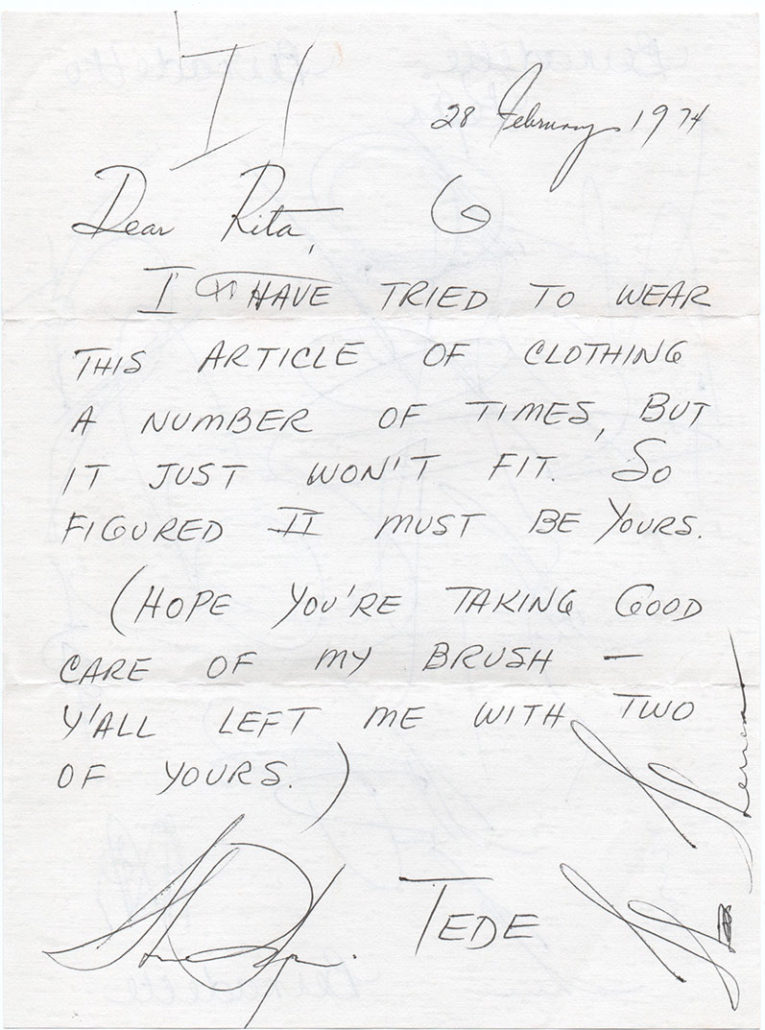 28 February 1974
Dear Rita,
I HAVE TRIED TO WEAR
THIS ARTICLE OF CLOTHING
A NUMBER OF TIMES, BUT
IT JUST WON'T FIT. SO
FIGURED IT MUST BE YOURS.
(HOPE YOU'RE TAKING GOOD
CARE OF MY BRUSH —
Y'ALL LEFT ME WITH TWO
OF YOURS.)
TEDE